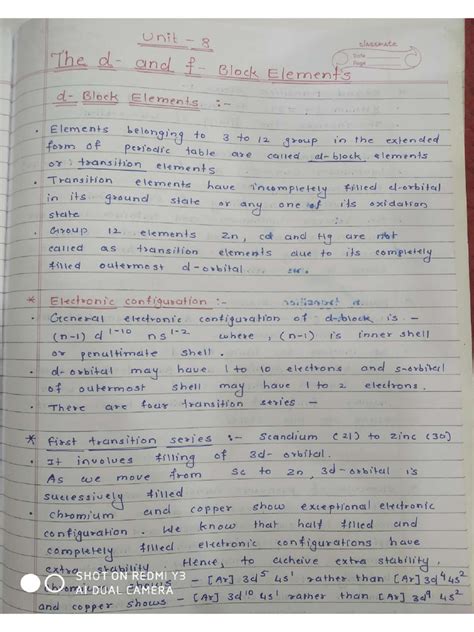 Unit - 8
classmate
Date
Page
The d- and f- Block Elements
d- Block Elements :-
• Elements belonging to 3 to 12 group in the extended
form of periodic table are called d-block elements
or transition elements
• Transition elements have incompletely filled d-orbital
in its ground state or any one of its oxidation
state
• Group 12 elements Zn, Cd and Hg are not
called as transition elements due to its completely
filled outermost d-orbital
* Electronic configuration :-
• General electronic configuration of d-block is -
(n-1) d 1-10 ns 1-2 where, (n-1) is inner shell
or penultimate shell.
• d-orbital may have 1 to 10 electrons and s-orbital
of outermost shell may have 1 to 2 electrons.
• There are four transition series -
* First transition series :- Scandium (21) to zinc (30)
• It involves filling of 3d- orbital.
As we move from Sc to Zn, 3d-orbital is
successively filled
• chromium and copper show exceptional electronic
configuration. We know that half filled and
completely filled electronic configurations have
extra stability. Hence, to acheive extra stability
shows - [Ar] 3d5 4s1 rather than [Ar] 3d4 4s2
and copper shows - [Ar] 3d10 4s1 rather than [Ar] 3d9 4s2
SHOT ON REDMI Y3
AI DUAL CAMERA